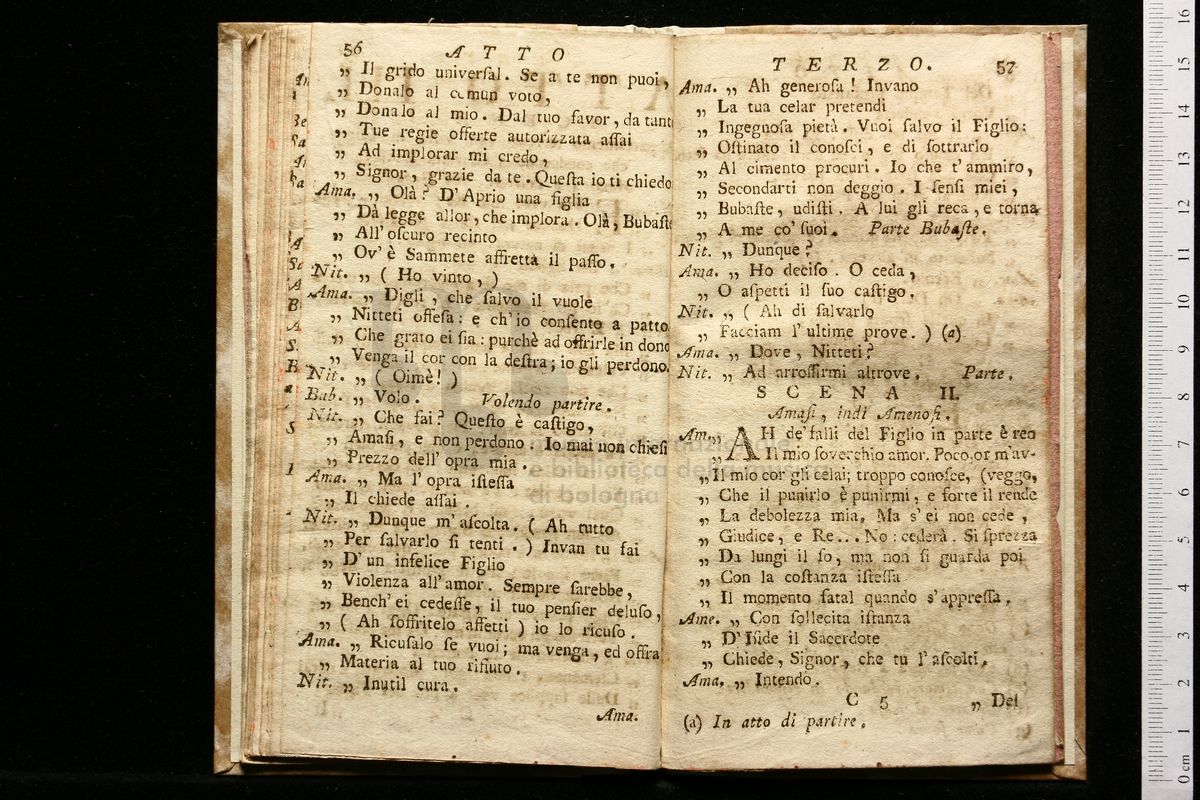 56 ATTO
„ Il grido univerſal. Se a te non puoi,
„ Donalo al comun voto,
„ Donalo al mio. Dal tuo favor, da tant
„ Tue regie offerte autorizzata aſſai
„ Ad implorar mi credo,
„ Signor, grazie da te. Queſta io ti chiedo
Ama. „ Olà? D' Aprio una figlia
„ Dà legge allor, che implora. Olà, Bubaſte
„ All' oſcuro recinto
„ Ov' è Sammete affretta il paſſo.
Nit. „ ( Ho vinto, )
Ama. „ Digli, che ſalvo il vuole
„ Nitteti offeſa: e ch' io conſento a patto
„ Che grato ei ſia: purchè ad offrirle in dono
„ Venga il cor con la deſtra; io gli perdono.
Nit. „ ( Oimè! )
Bub. „ Volo. Volendo partire.
Nit. „ Che fai? Queſto è caſtigo,
„ Amaſi, e non perdono. Io mai non chieſi
„ Prezzo dell' opra mia.
Ama. „ Ma l' opra iſteſſa
„ Il chiede aſſai.
Nit. „ Dunque m' aſcolta. ( Ah tutto
„ Per ſalvarlo ſi tenti. ) Invan tu fai
„ D' un infelice Figlio
„ Violenza all' amor. Sempre ſarebbe,
„ Bench' ei cedeſſe, il tuo penſier deluſo,
„ ( Ah ſoffritelo affetti ) io lo ricuſo.
Ama. „ Ricuſalo ſe vuoi; ma venga, ed offra
„ Materia al tuo rifiuto.
Nit. „ Inutil cura.
Ama.
TERZO. 57
Ama. „ Ah generoſa! Invano
„ La tua celar pretendi
„ Ingegnoſa pietà. Vuoi ſalvo il Figlio:
„ Oſtinato il conoſci, e di ſottrarlo
„ Al cimento procuri. Io che t' ammiro,
„ Secondarti non deggio. I ſenſi miei,
„ Bubaſte, udiſti. A lui gli reca, e torna
„ A me co' ſuoi. Parte Bubaſte.
Nit. „ Dunque?
Ama. „ Ho deciſo. O ceda,
„ O aſpetti il ſuo caſtigo.
Nit. „ ( Ah di ſalvarlo
„ Facciam l' ultime prove. ) (a)
Ama. „ Dove, Nitteti?
Nit. „ Ad arroſſirmi altrove. Parte.
SCENA II.
Amaſi, indi Amenofi.
Am. „ AH de' falli del Figlio in parte è reo
„ Il mio ſoverchio amor. Poco, or m' av-
„ Il mio cor gli celai; troppo conoſce, (veggo,
„ Che il punirlo è punirmi, e forte il rende
„ La debolezza mia. Ma s' ei non cede,
„ Giudice, e Re... No: cederà. Si ſprezza
„ Da lungi il ſo, ma non ſi guarda poi
„ Con la coſtanza iſteſſa
„ Il momento fatal quando s' appreſſa.
Ame. „ Con ſollecita iſtanza
„ D' Iſide il Sacerdote
„ Chiede, Signor, che tu l' aſcolti.
Ama. „ Intendo.
C 5 „ Del
(a) In atto di partire.